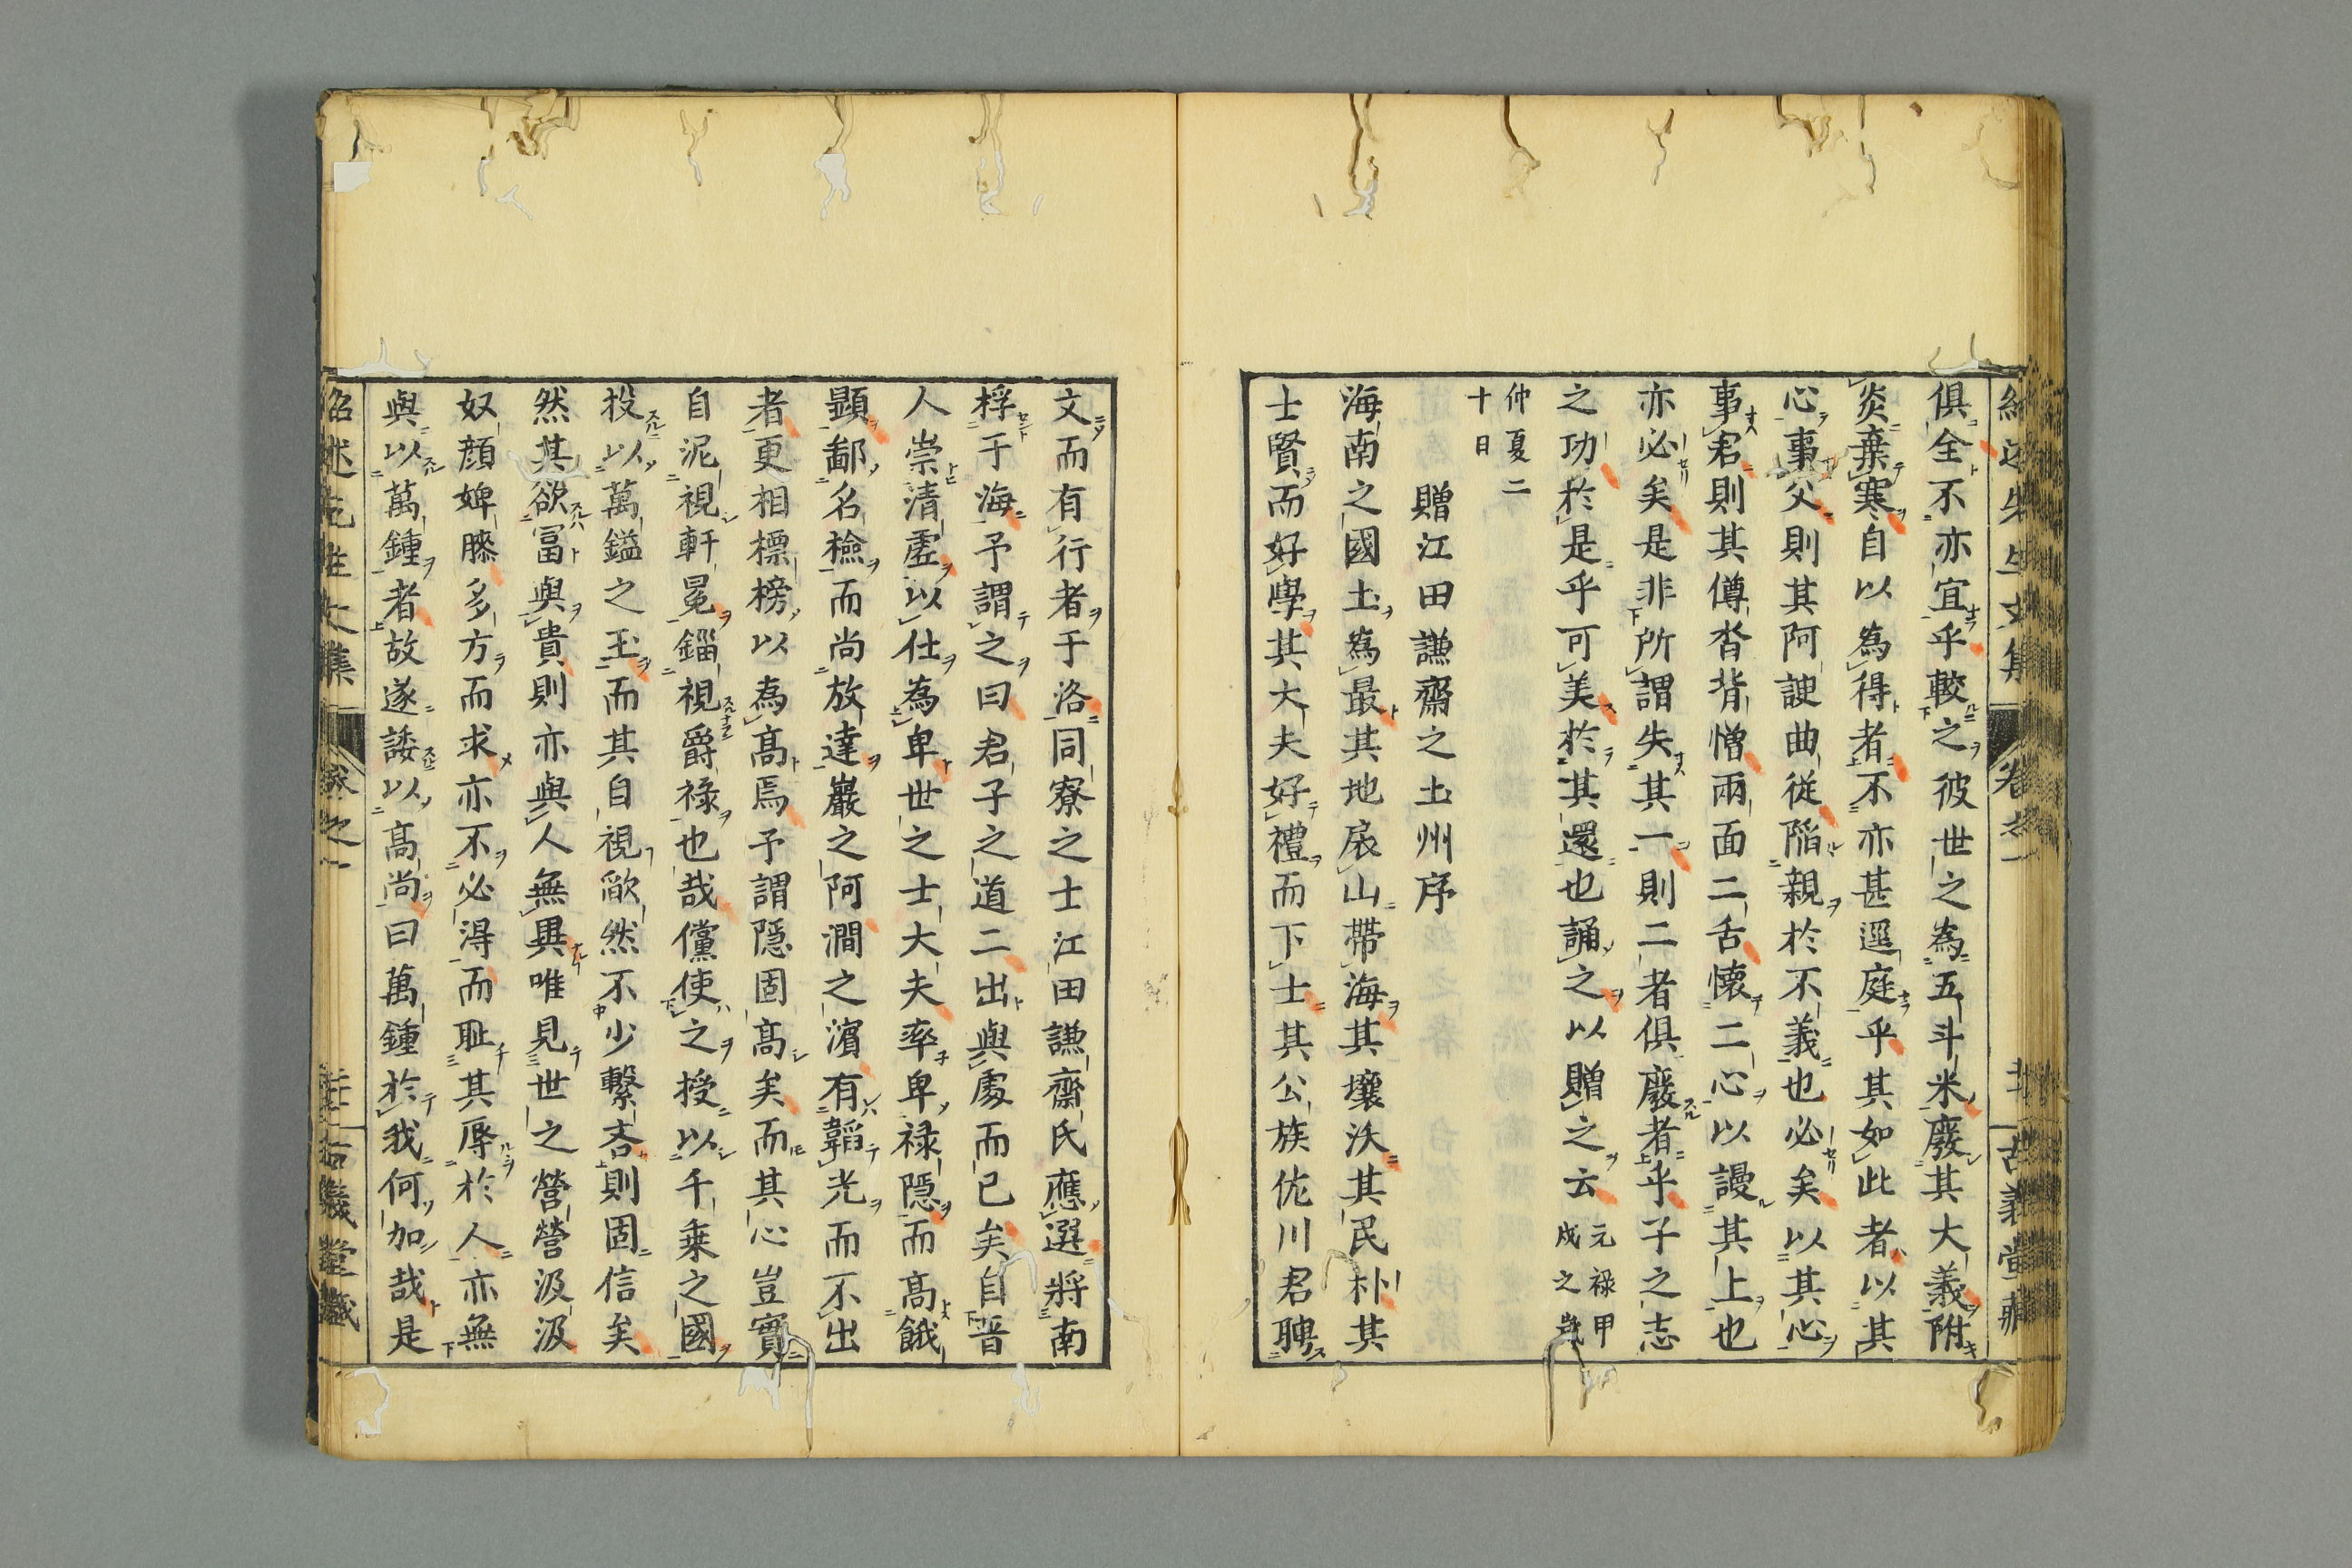 俱全不亦宜乎較之彼世之為五斗米廢其大義附
炎棄寒自以為得者不亦甚逕庭乎其如此者以其
心事父則其阿諛曲從陷親於不義也必矣以其心
事君則其僔沓背憎兩面二舌懷二心以謾其上也
亦必矣是非所謂失其一則二者俱廢者乎子之志
之功於是乎可美於其還也誦之以贈之云元禄甲戌之歲
仲夏二十日
贈江田謙齋之土州序
海南之國土為最其地扆山帶海其壤沃其民朴其
士賢而好學其大夫好禮而下士其公族佐川君聘
文而有行者于洛同寮之士江田謙齋氏應選將南
桴于海予謂之曰君子之道二出與處而已矣自晋
人崇清虛以仕為卑世之士大夫率卑禄隱而高餓
顯鄙名檢而尚放達巖之阿澗之濱有韜光而不出
者更相標榜以為高焉予謂隱固高矣而其心豈實
自泥視軒冕錙視爵祿也哉儻使之授以千乗之國
投以萬鎰之玉而其自視欿然不少繫吝則固信矣
然其欲冨與貴則亦與人無異唯見世之營營汲汲
奴顔婢膝多方而求亦不必得而耻其辱於人亦無
與以萬鍾者故遂諉以高尚曰萬鍾於我何加哉是
紹述先生文集
卷之一
古義堂藏